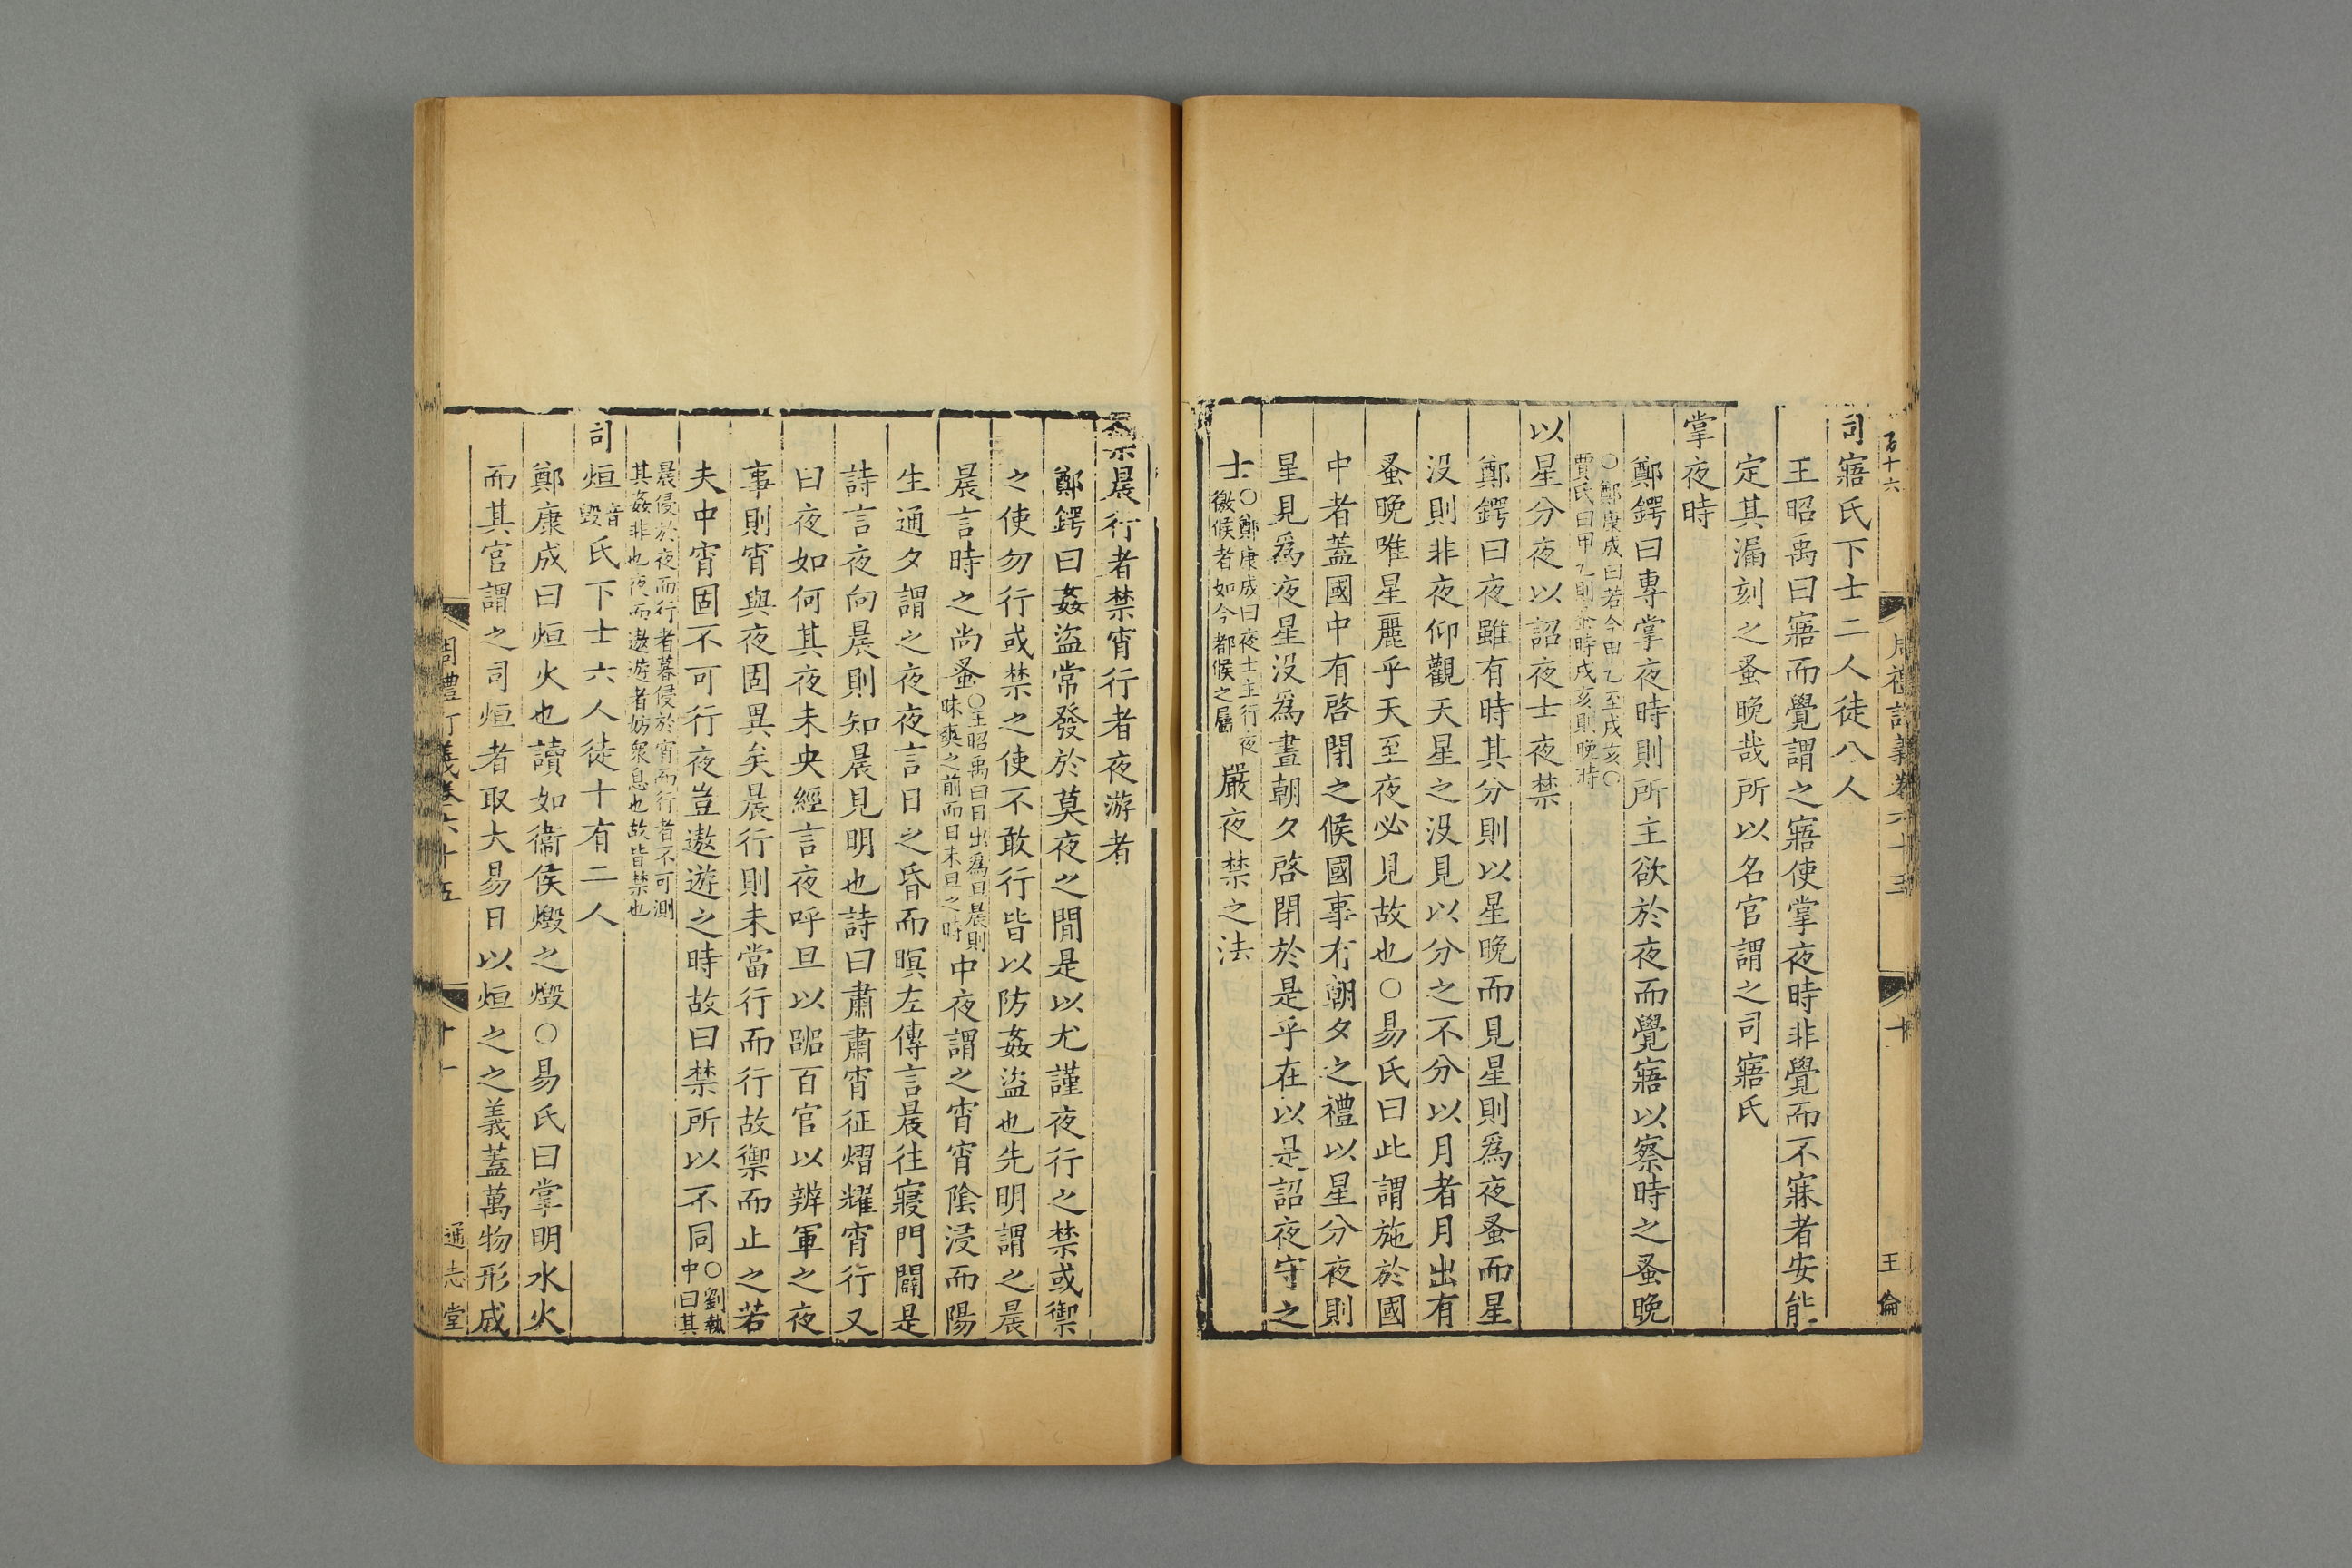 司寤氏下士二人徒八人
王昭禹曰寤而覺謂之寤使掌夜時非覺而不寐者安能
定其漏刻之蚤晚哉所以名官謂之司寤氏
掌夜時
鄭鍔曰專掌夜時則所主欲於夜而覺寤以察時之蚤晚
○鄭康成曰若今甲乙至戌亥○
賈氏曰甲乙則蚤時戌亥則晚時
以星分夜以詔夜士夜禁
鄭鍔曰夜雖有時其分則以星晚而見星則爲夜蚤而星
没則非夜仰觀天星之没見以分之不分以月者月出有
蚤晚唯星麗乎天至夜必見故也○易氏曰此謂施於國
中者蓋國中有啓閉之候國事有朝夕之禮以星分夜則
星見爲夜星没爲晝朝夕啓閉於是乎在以是詔夜守之
士○鄭康成曰夜士主行夜徼候者如今都候之屬嚴夜禁之法
禦晨行者禁宵行者夜游者
鄭鍔曰姦盜常發於莫夜之間是以尤謹夜行之禁或禦
之使勿行或禁之使不敢行皆以防姦盜也先明謂之晨
晨言時之尚蚤○王昭禹曰日出爲旦晨則昧爽之前而日未旦之時中夜謂之宵宵陰浸而陽
生通夕謂之夜夜言日之昏而暝左傳言晨往寢門闢是
詩言夜向晨則知晨見明也詩曰肅肅宵征熠燿宵行又
曰夜如何其夜未央經言夜呼旦以嘂百官以辨軍之夜
事則宵與夜固異矣晨行則未當行而行故禦而止之若
夫中宵固不可行夜豈遨遊之時故曰禁所以不同○劉執中曰其
晨侵於夜而行者暮侵於宵而行者不可測
其姦非也夜而遨遊者妨衆息也故皆禁也
司烜音毀氏下士六人徒十有二人
鄭康成曰烜火也讀如衞侯燬之燬○易氏曰掌明水火
而其官謂之司烜者取大易日以烜之之義蓋萬物形成
周禮訂義卷六十五
十一
通志堂
百十六
十
王倫